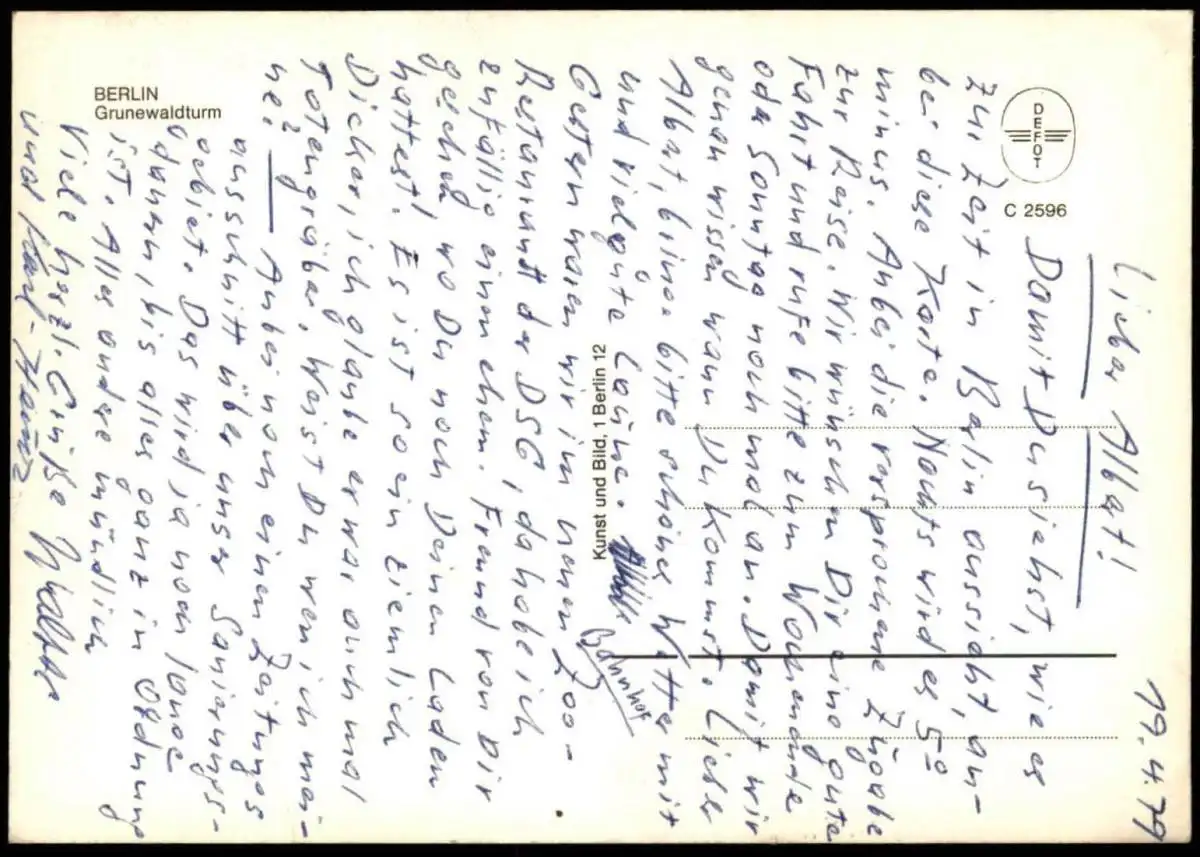 BERLIN
Grunewaldturm
DEFOT
C 2596
Kunst und Bild, 1 Berlin 12
19.4.79
Lieber Albert!
Damit Du siehst, wie es
zur Zeit in Berlin aussieht, an-
bei diese Karte. Nachts wird es 5°
minus. Anbei die versprochene Zugabe
zur Reise. Wir wünschen Dir eine gute
Fahrt und rufe bitte zum Wochenende
oder Sonntag noch mal an. Damit wir
genau wissen wann Du kommst. Lieber
Albert, bring bitte schönes Wetter mit
und viel gute Laune.
Gestern waren wir im neuen Zoo-
Bahnhof
Restaurant der DSG, da habe ich
zufällig einen ehem. Freund von Dir
gesehen, wo Du noch Deinen Laden
hattest. Es ist so ein ziemlich
Dicker, ich glaube er war auch mal
Totengräber. Weist Du wen ich mei-
ne?
Anbei noch einen Zeitungs
ausschnitt über unser Sanierungs-
gebiet. Das wird ja noch lange
dauern, bis alles ganz in Ordnung
ist. Alles andere mündlich
Viele herzl. Grüße
und Karl-Heinz